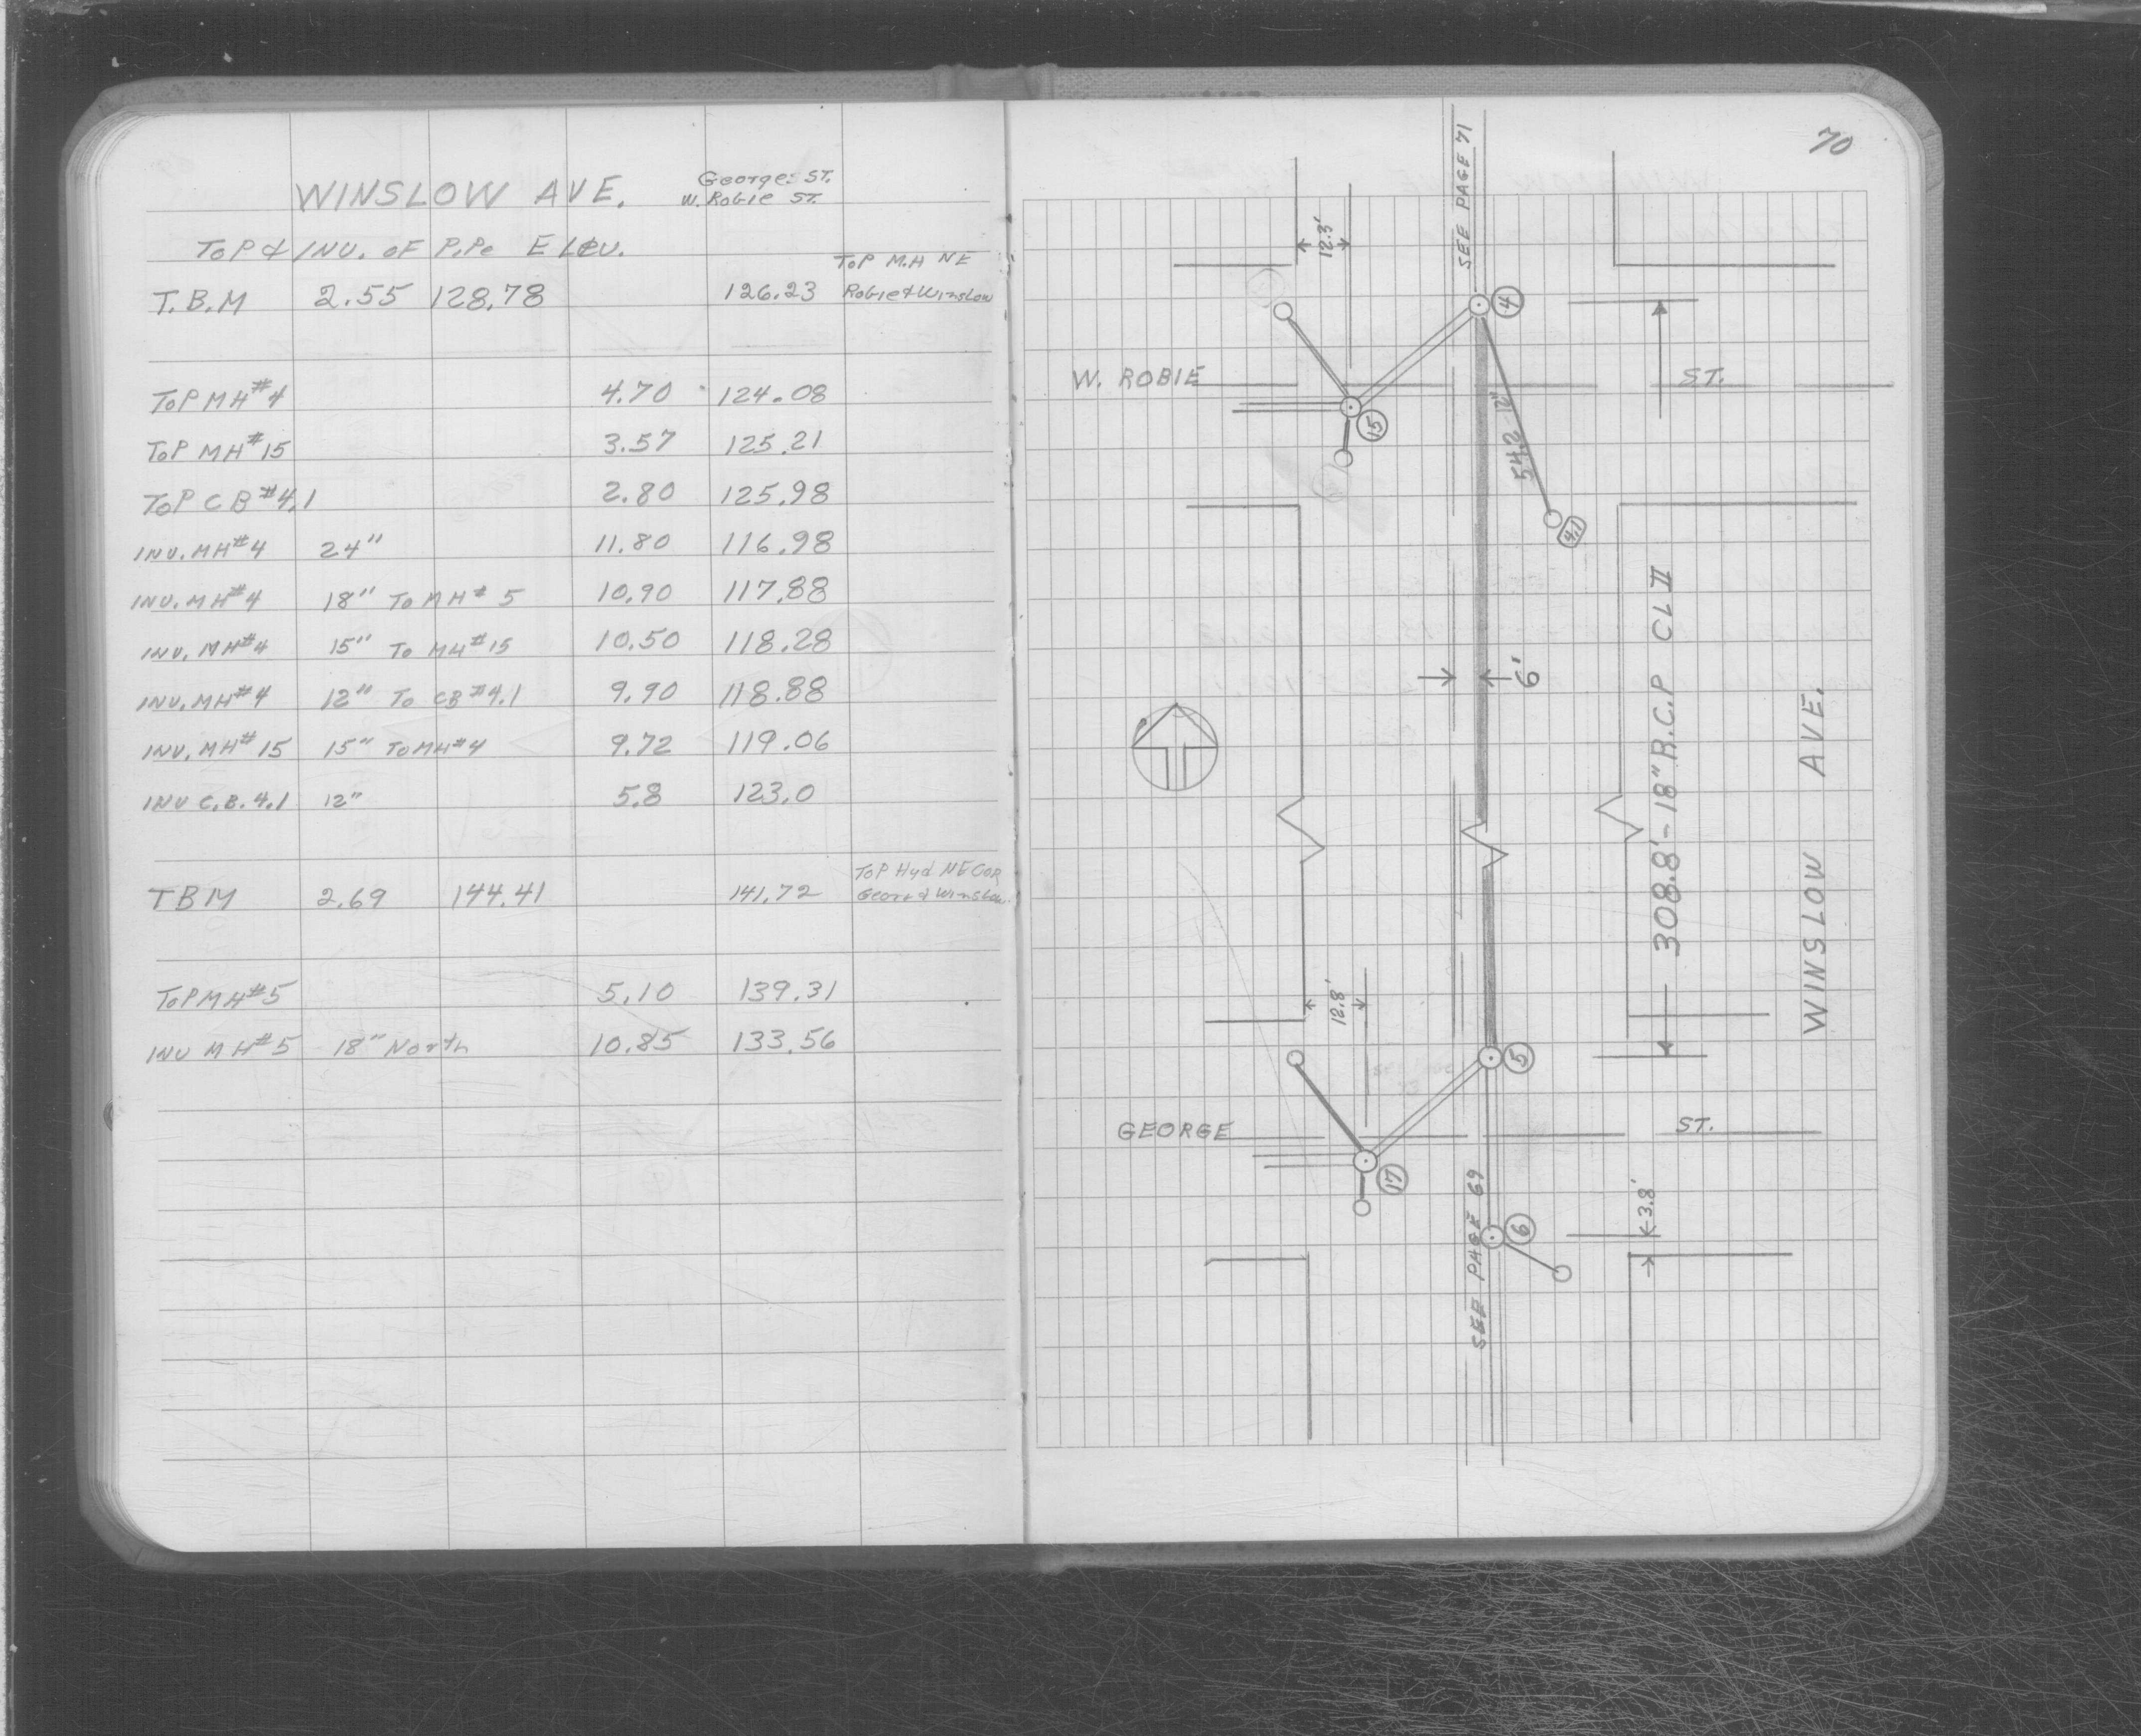 WINSLOW AVE. George ST.
W. Robie ST.
TOP & INV. OF PIPe ELev.
T.B.M 2.55 128.78 126.23 TOP M.H NE
Robie & Winslow
TOP MH #4 4.70 124.08
TOP MH #15 3.57 125.21
TOP CB #4.1 2.80 125.98
INV. MH #4 24" 11.80 116.98
INV. MH #4 18" To MH # 5 10.90 117.88
INV. MH #4 15" To MH #15 10.50 118.28
INV. MH #4 12" To CB #4.1 9.90 118.88
INV. MH # 15 15" To MH #4 9.72 119.06
INV C.B. 4.1 12" 5.8 123.0
TBM 2.69 144.41 141.72 TOP Hyd NE COR
& Winslow
TOP MH #5 5.10 139.31
INV MH #5 18" North 10.85 133.56
70
SEE PAGE 71
12.3'
4
W. ROBIE ST.
15
54.2 12"
4.1
6'
308.8' - 18" R.C.P CL II
WINSLOW AVE.
12.8'
5
GEORGE ST.
17
SEE PAGE 69
6
3.8'